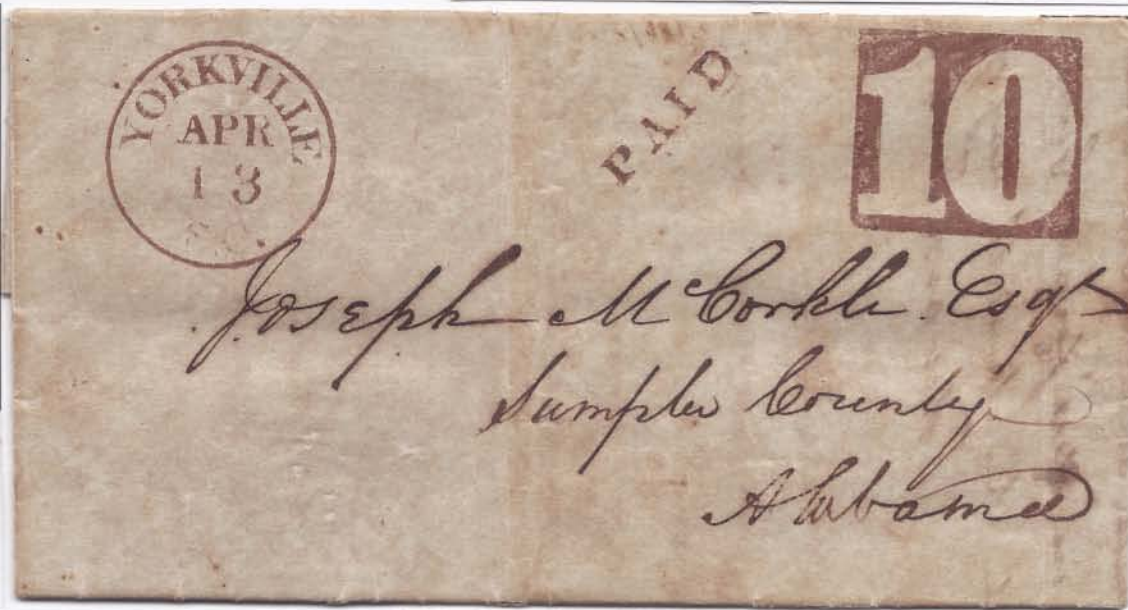 YORKVILLE
APR
13
PAID
10
Joseph McCorkle Esqr
Sumpter County
Alabama